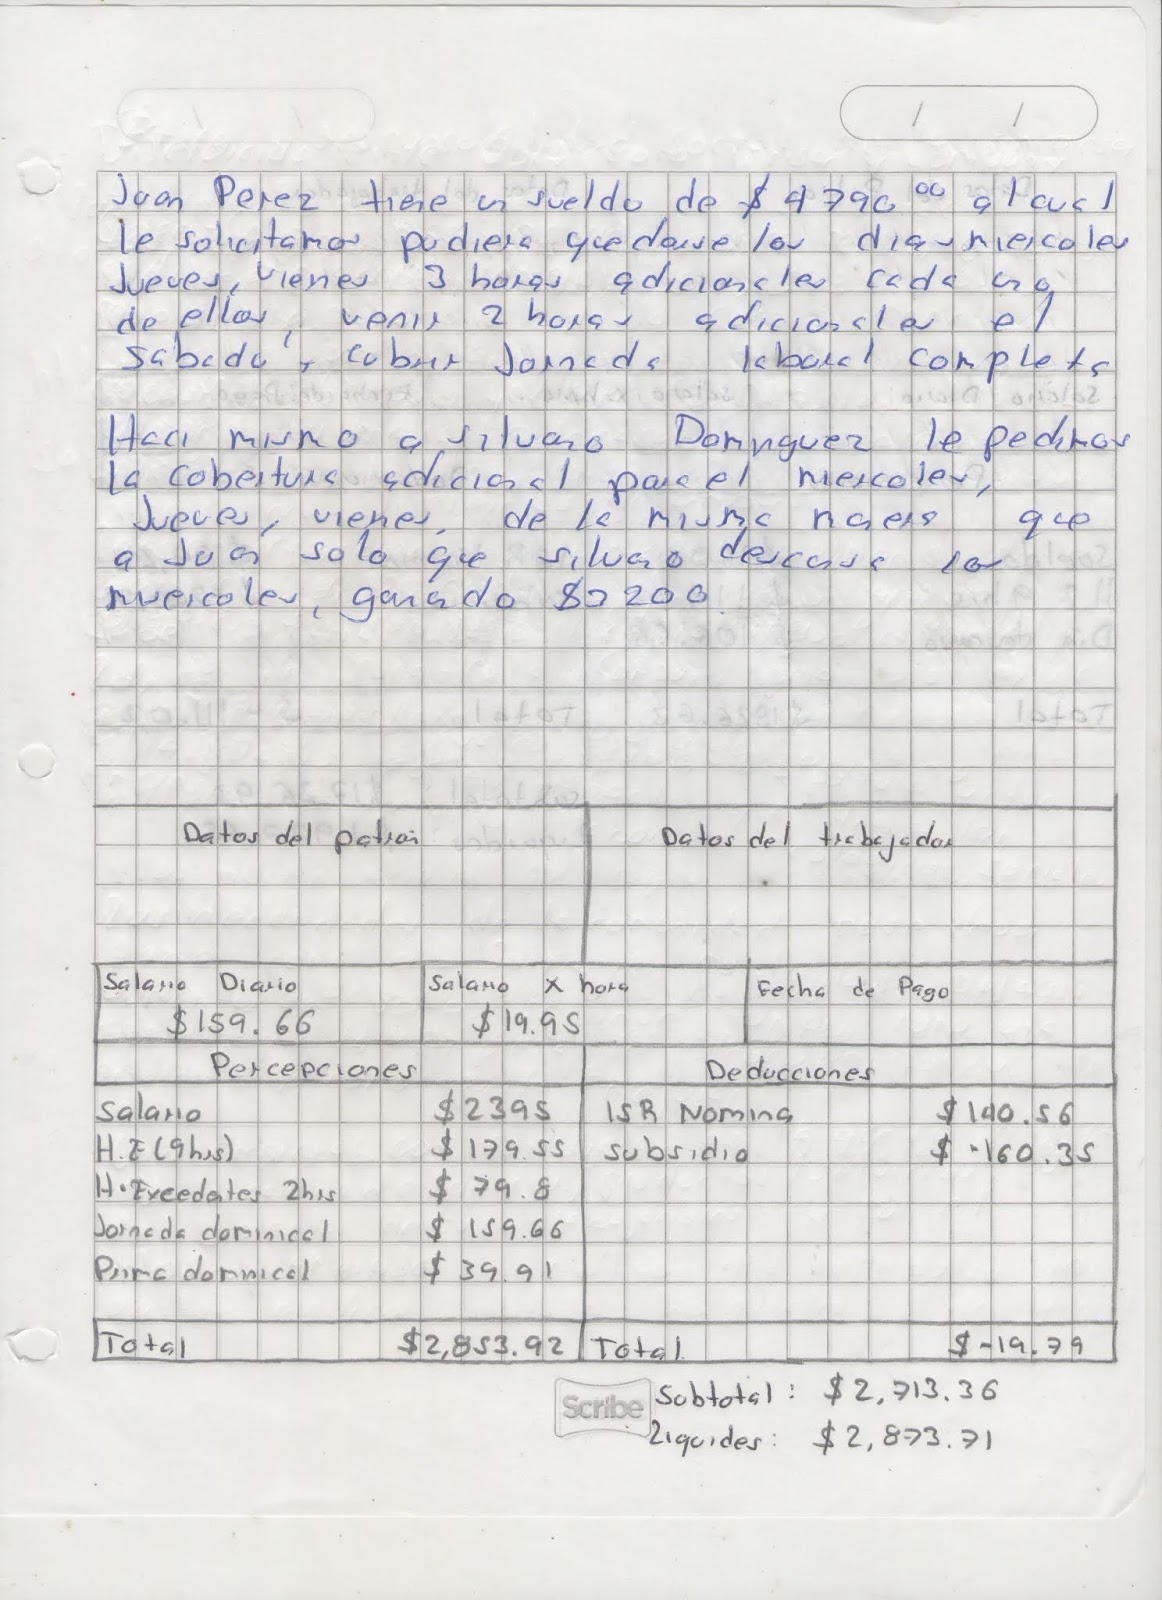 / /
Juan Perez tiene un sueldo de $ 4790.00 al cual
le solicitamos pudiera quedarse los dias miercoles
Jueves, vienes 3 horas adicionales cada uno
de ellos, venir 2 horas adicionales el
Sabado, cubrir Jornada laboral completa
Haci mismo a silvano Dominguez le pedimos
la cobertura adicional para el miercoles,
Jueves, vienes, de la misma manera que
a Juan solo que silvano descansa los
miercoles, ganado $3200
Datos del patron Datos del trabajador
Salario Diario Salario x hora Fecha de Pago
$159.66 $19.95
Percepciones Deducciones
Salario $2395 ISR Nomina $140.56
H.E (9hrs) $179.55 subsidio $-160.35
H.Excedates 2hrs $79.8
Jornada dominical $159.66
Prima dominical $39.91
Total $2,853.92 Total $-19.79
Scribe Subtotal: $2,713.36
Liquides: $2,873.71